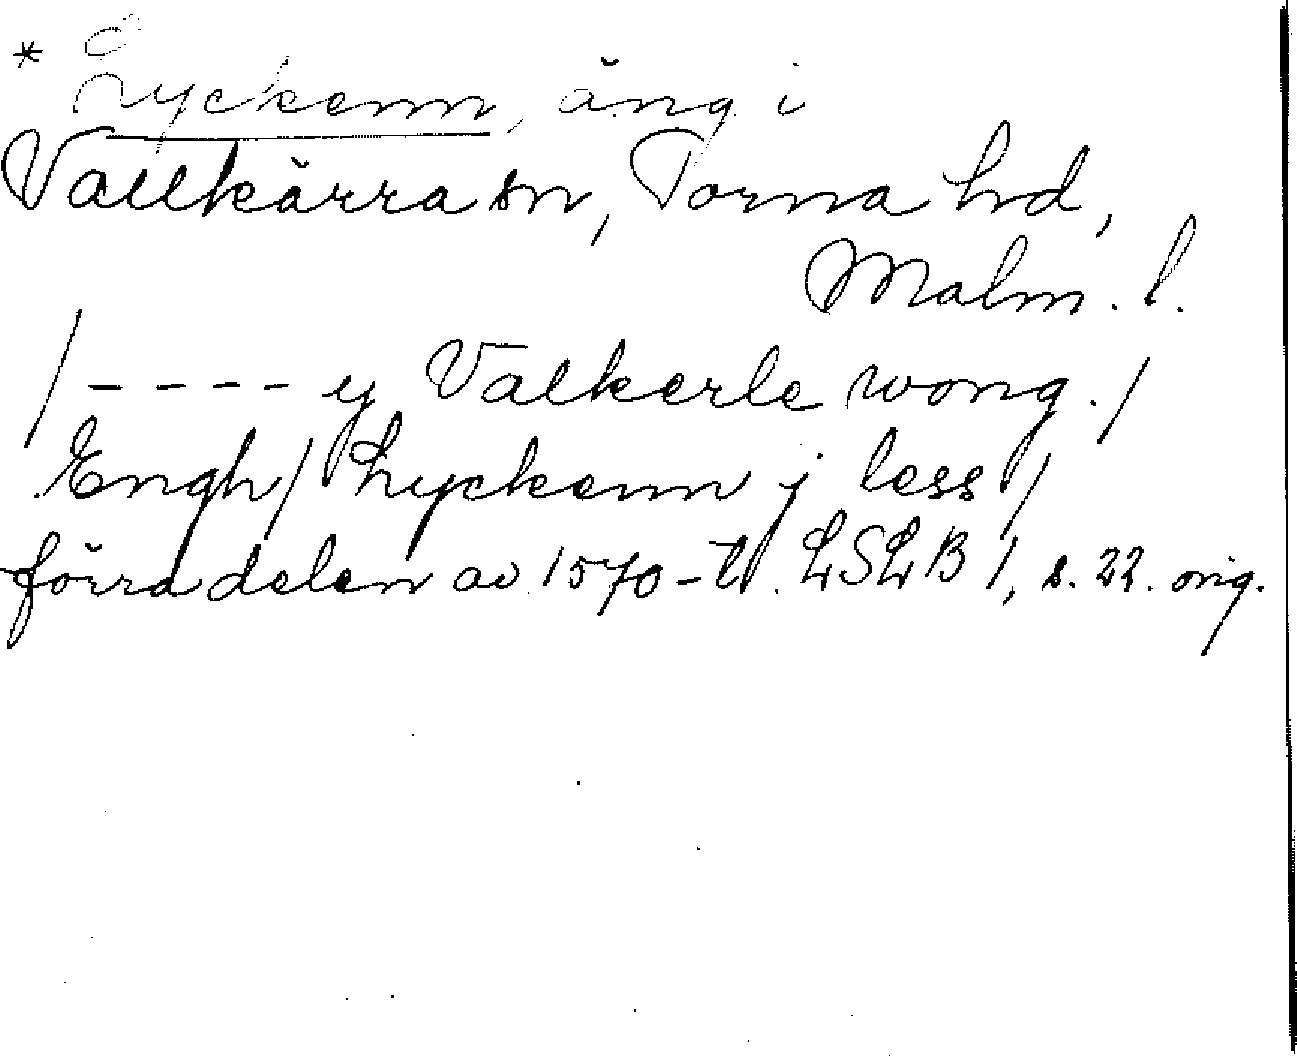 * Lyckenn, äng i
Vallkärra sn, Torna hd,
Malm. l.
/ - - - - y Valkerle wong. /
Engh / Lyckenn j less /
förra delen av 1570-t. LSLB 1, s. 22. orig.